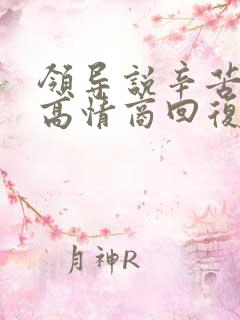 領导説辛苦
高情商回復
月神R